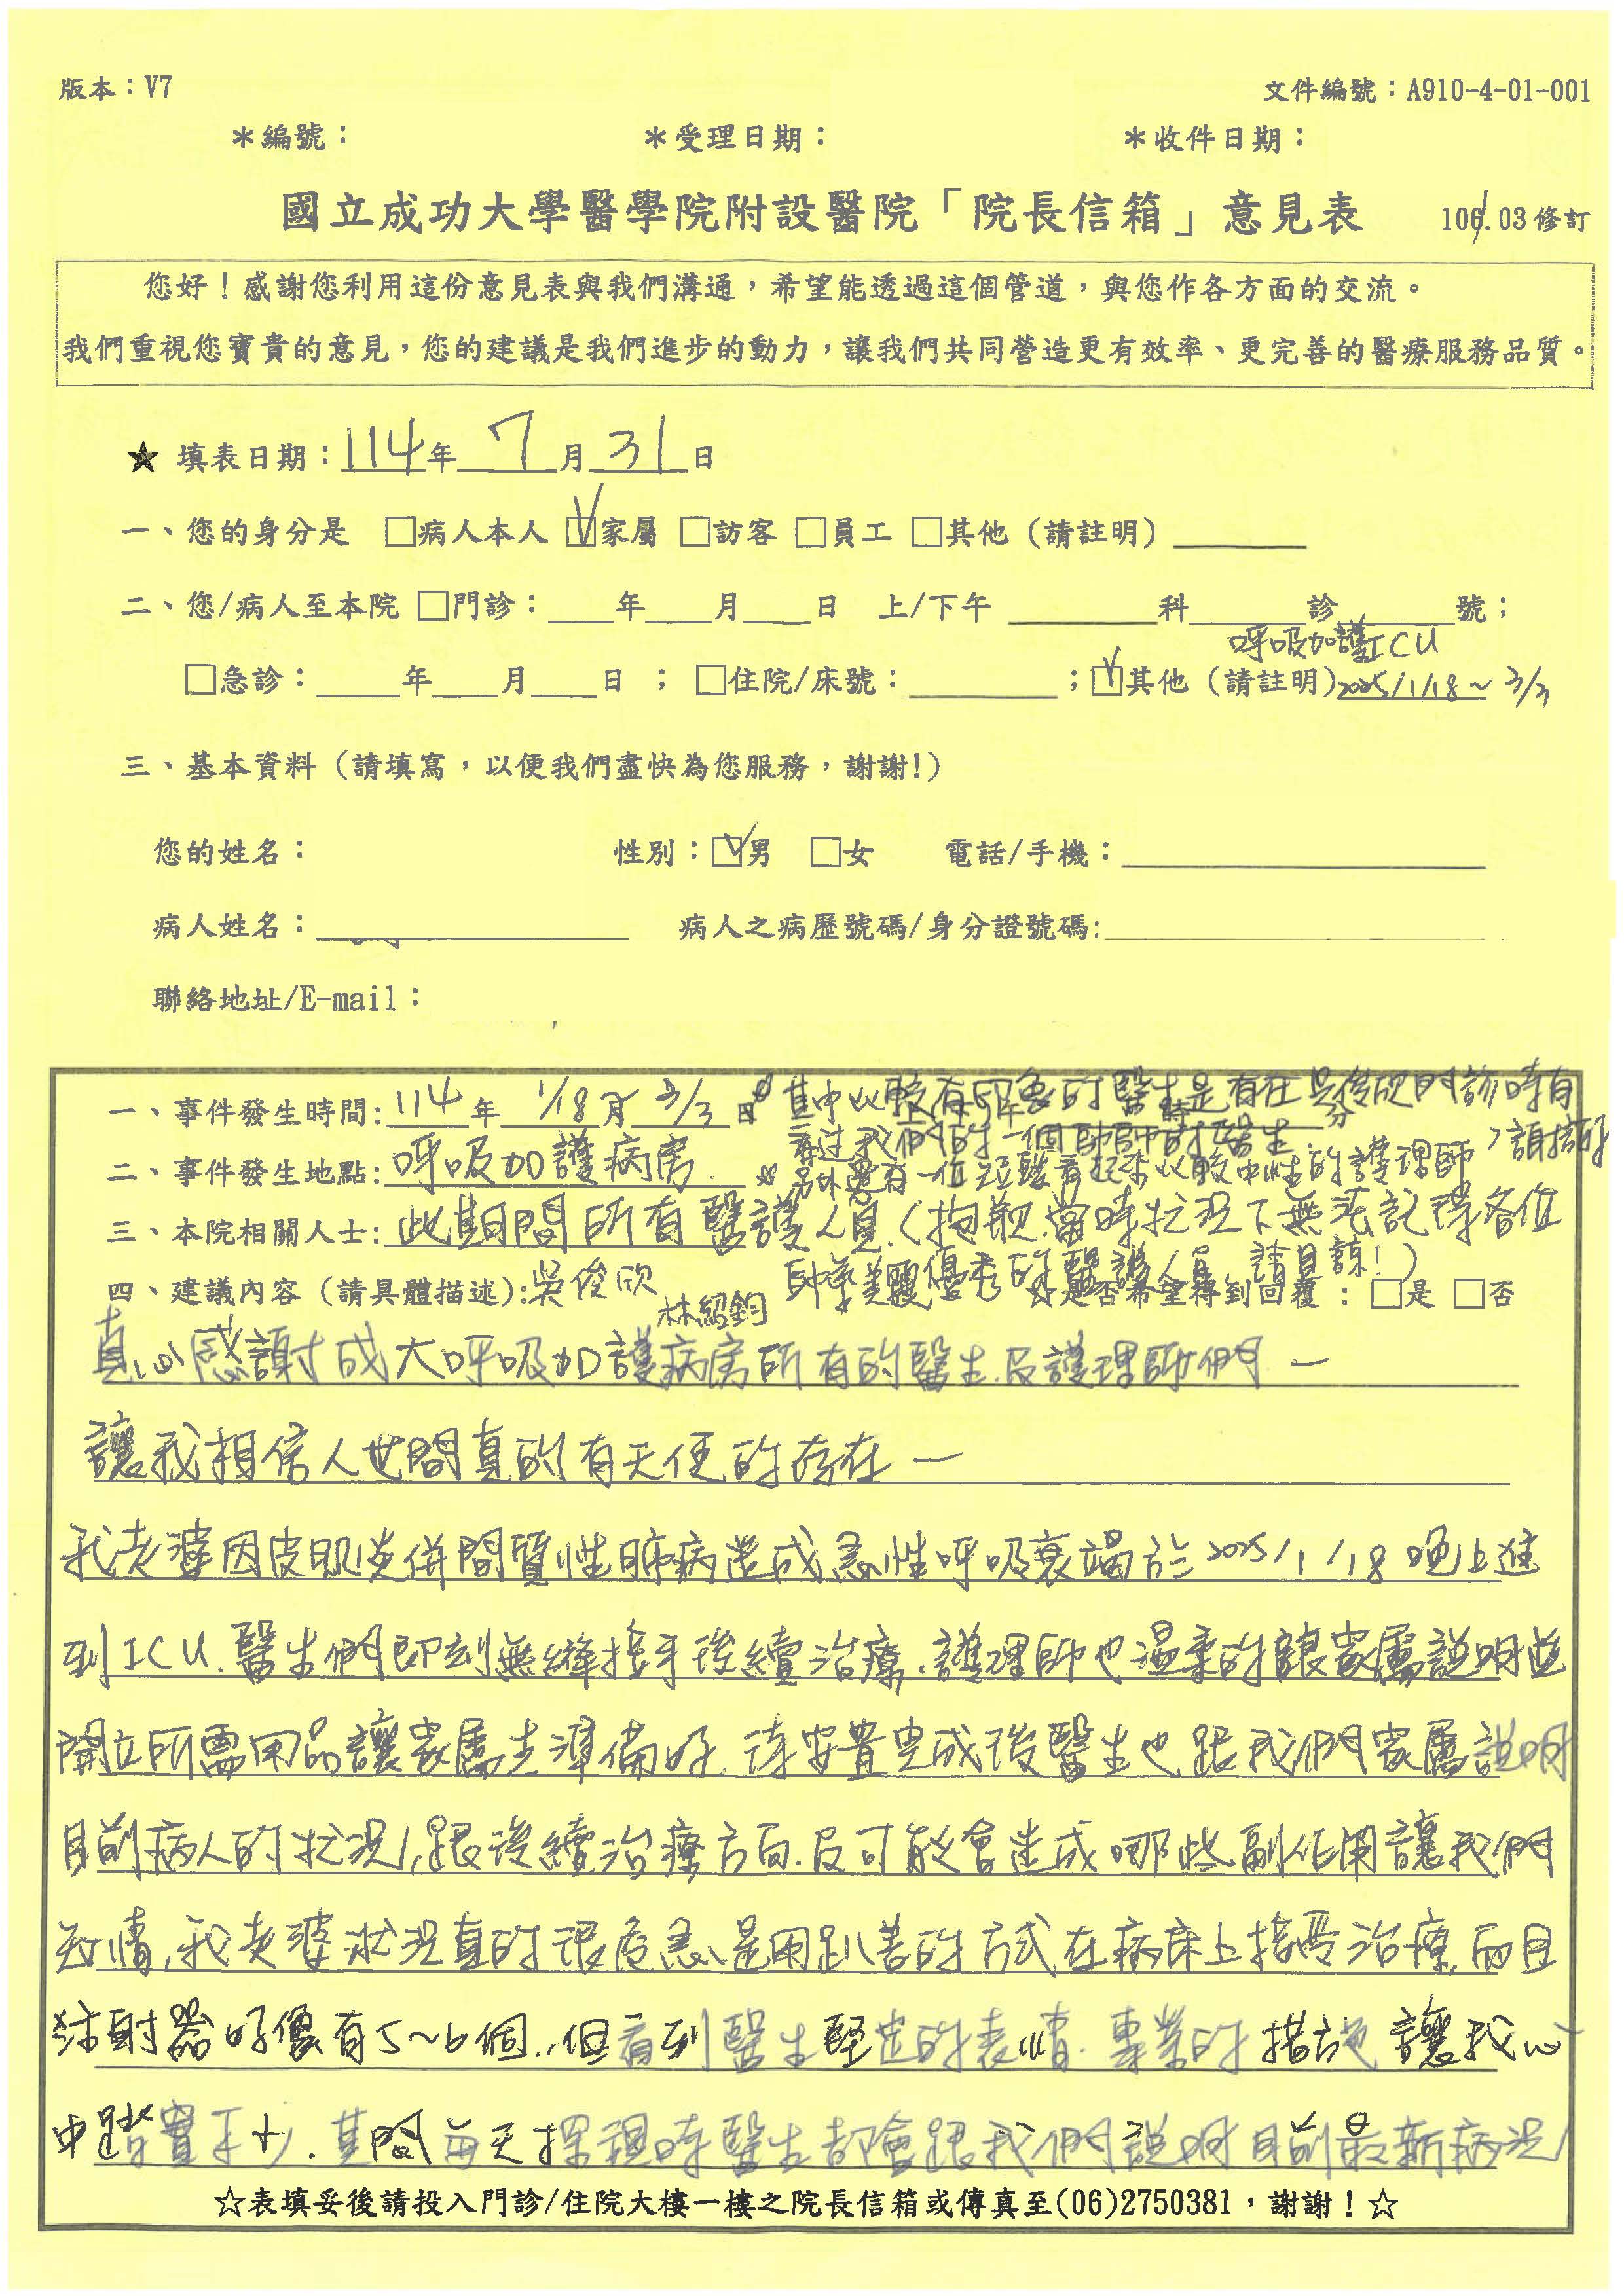 版本：V7
文件編號：A910-4-01-001
＊編號：
＊受理日期：
＊收件日期：
國立成功大學醫學院附設醫院「院長信箱」意見表
106.03修訂
您好！感謝您利用這份意見表與我們溝通，希望能透過這個管道，與您作各方面的交流。
我們重視您寶貴的意見，您的建議是我們進步的動力，讓我們共同營造更有效率、更完善的醫療服務品質。
★ 填表日期：114年 7月31日
一、您的身分是 □病人本人 ☑家屬 □訪客 □員工 □其他（請註明）
二、您/病人至本院 □門診：＿年＿月＿日 上/下午 ＿科＿診＿號；
呼吸加護ICU
□急診：＿年＿月＿日 ； □住院/床號：＿；☑其他（請註明）2025/1/18～3/3
三、基本資料（請填寫，以便我們盡快為您服務，謝謝!）
您的姓名：
性別：☑男 □女
電話/手機：
病人姓名：
病人之病歷號碼/身分證號碼:
聯絡地址/E-mail：
一、事件發生時間:114年 1/18月 3/3日
*其中以較有印象的醫生是有在吳俊欣門診時有
看過我們的一個帥帥的醫生
二、事件發生地點:呼吸加護病房.
*另外還有一位短髮看起來以較中性的護理師
三、本院相關人士:此期間所有醫護人員.(抱歉.當時狀況下無法記得各位
帥氣美麗優秀的醫護人員 請見諒!)
四、建議內容（請具體描述):吳俊欣
林紹鈞
☆是否希望得到回覆：□是 □否
真心感謝成大呼吸加護病房所有的醫生.及護理師們－
讓我相信人世間真的有天使的存在－
我老婆因皮肌炎併間質性肺病造成急性呼吸衰竭於2025/1/18晚上進
到ICU.醫生們即刻無縫接手後續治療,護理師也溫柔的讓家屬說明並
開立所需用品讓家屬先準備好.待安置完成後醫生也跟我們家屬說明
目前病人的狀況,跟後續治療方向.及可能會造成哪些副作用讓我們
知情,我老婆狀況真的很危急是用趴著的方式在病床上接受治療,而且
注射器好像有5～6個.,但看到醫生堅定的表情.專業的措施讓我心
中踏實不少.其間每天探視時醫生都會跟我們說明目前最新病況
☆表填妥後請投入門診/住院大樓一樓之院長信箱或傳真至(06)2750381，謝謝！☆